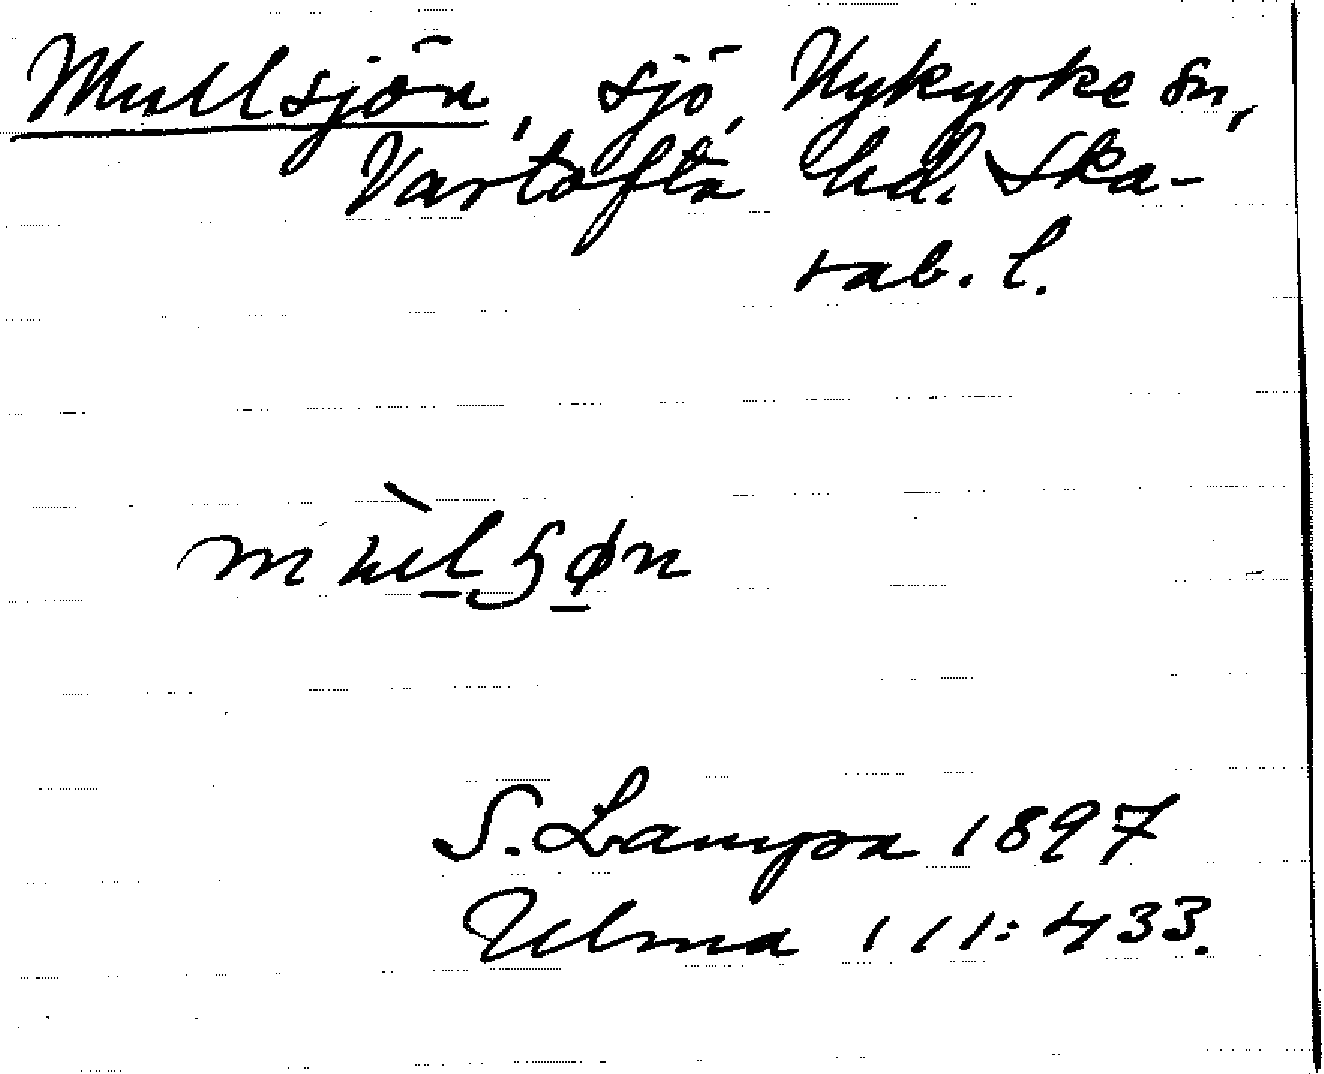 Mullsjön, sjö, Nykyrke sn,
Vartofta hd. Ska-
rab. l.
S. Lampa 1897
Ulma 111:433.